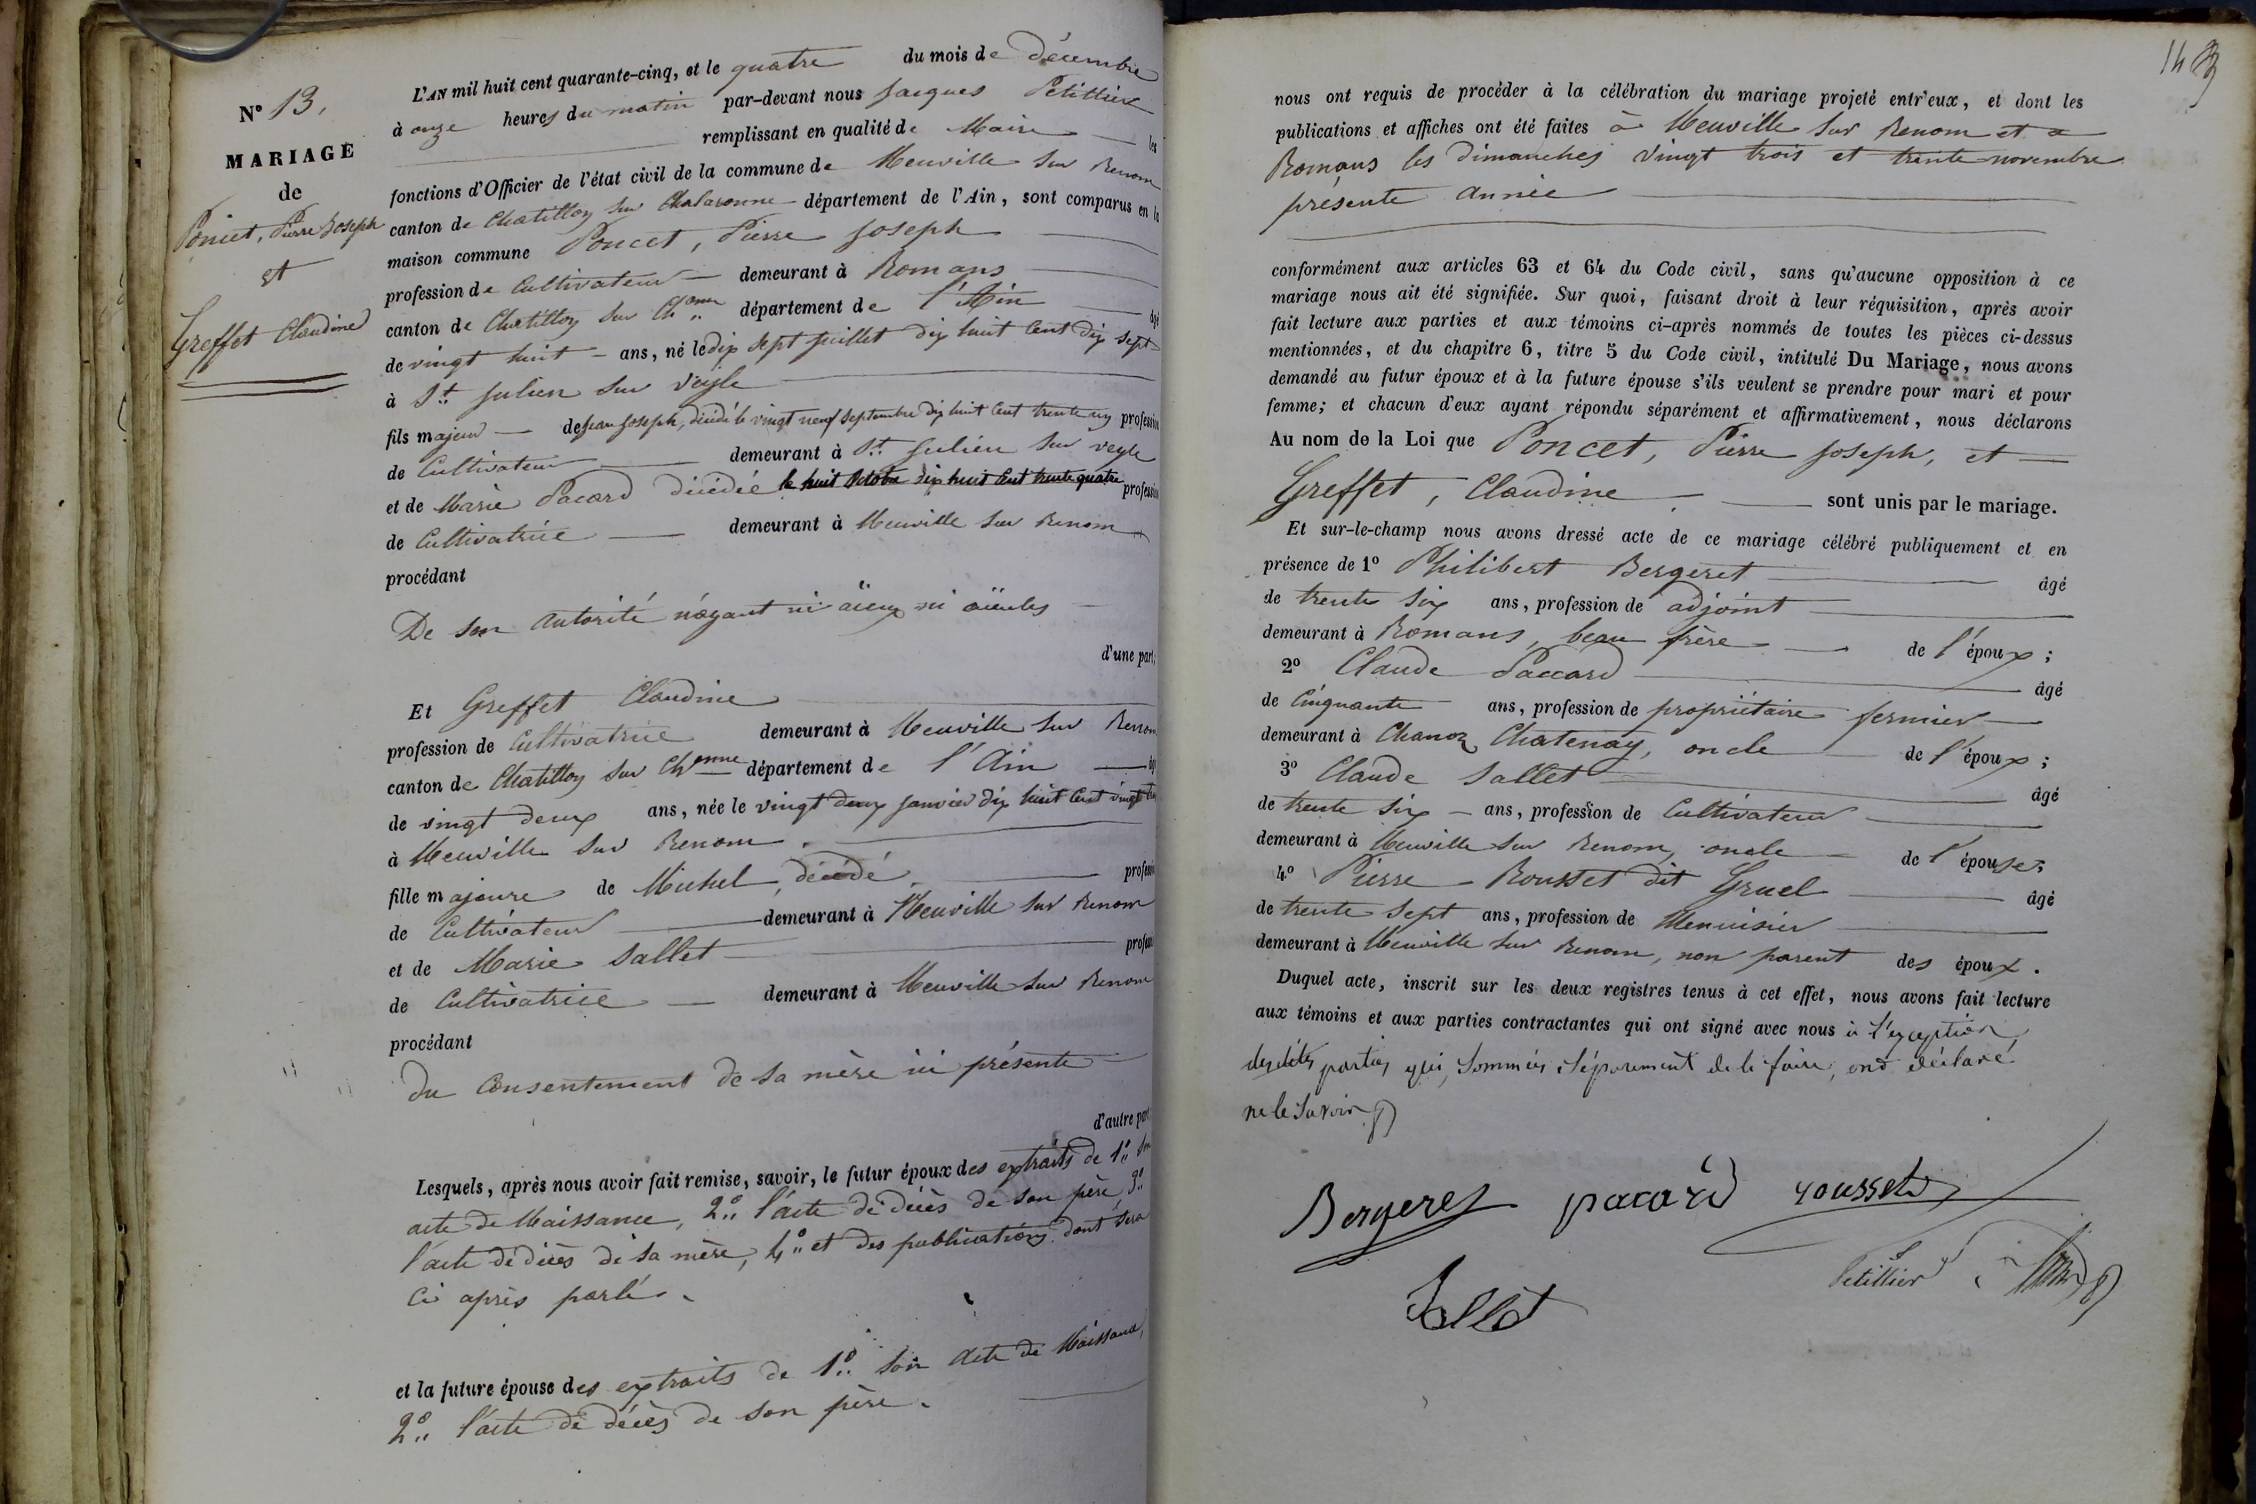 N° 13.
MARIAGE
de
Poncet, Pierre Joseph
et
Greffet Claudine
L'AN mil huit cent quarante-cinq, et le quatre du mois de Décembre
à onze heures du matin par-devant nous Jacques Petittier
remplissant en qualité de Maire les
fonctions d'Officier de l'état civil de la commune de Neuville sur Renom
canton de Chatillon sur Chalaronne département de l'Ain, sont comparus en la
maison commune Poncet, Pierre Joseph
profession de Cultivateur demeurant à Romans
canton de Chatillon sur Ch.onne département de l'Ain âgé
de vingt huit ans, né le dix sept juillet dix huit cent dix sept
à St. Julien sur Veyle
fils majeur de Jean Joseph, décédé le vingt neuf septembre dix huit cent trente un profession
de Cultivateur demeurant à St. Julien sur Veyle
et de Marie Pacard décédée le huit octobre dix huit cent trente quatre profession
de Cultivatrice demeurant à Neuville sur Renom
procédant
De son autorité n'ayant ni aïeux ni aïeules
d'une part;
Et Greffet Claudine
profession de Cultivatrice demeurant à Neuville sur Renom
canton de Chatillon sur Chonne département de l'Ain âgé
de vingt deux ans, née le vingt deux janvier dix huit cent vingt trois
à Neuville sur Renom.
fille majeure de Michel, décédé profession
de Cultivateur demeurant à Neuville sur Renom
et de Marie Sallet profession
de Cultivatrice demeurant à Neuville sur Renom
procédant
du consentement de sa mère ici présente
d'autre part
Lesquels, après nous avoir fait remise, savoir, le futur époux des extraits de 1° son
acte de Naissance, 2° l'acte de décès de son père, 3°
l'acte de décès de sa mère, 4° et des publications dont sera
ci après parlé.
et la future épouse des extraits de 1° son acte de Naissance,
2° l'acte de décès de son père.
14
nous ont requis de procéder à la célébration du mariage projeté entr'eux, et dont les
publications et affiches ont été faites à Neuville sur Renom et a
Romans les dimanches vingt trois et trente novembre
présente année
conformément aux articles 63 et 64 du Code civil, sans qu'aucune opposition à ce
mariage nous ait été signifiée. Sur quoi, faisant droit à leur réquisition, après avoir
fait lecture aux parties et aux témoins ci-après nommés de toutes les pièces ci-dessus
mentionnées, et du chapitre 6, titre 5 du Code civil, intitulé Du Mariage, nous avons
demandé au futur époux et à la future épouse s'ils veulent se prendre pour mari et pour
femme; et chacun d'eux ayant répondu séparément et affirmativement, nous déclarons
Au nom de la Loi que Poncet, Pierre Joseph, et
Greffet, Claudine sont unis par le mariage.
Et sur-le-champ nous avons dressé acte de ce mariage célébré publiquement et en
présence de 1° Philibert Bergeret âgé
de trente six ans, profession de adjoint
demeurant à Romans, beau frère de l'époux;
2° Claude Paccard âgé
de Cinquante ans, profession de propriétaire fermier
demeurant à Chanoz Chatenay, oncle de l'époux;
3° Claude Sallet âgé
de trente six ans, profession de Cultivateur
demeurant à Neuville sur Renom, oncle de l'épouse;
4° Pierre Rousset dit Gruel âgé
de trente sept ans, profession de Menuisier
demeurant à Neuville sur Renom, non parent des époux.
Duquel acte, inscrit sur les deux registres tenus à cet effet, nous avons fait lecture
aux témoins et aux parties contractantes qui ont signé avec nous à l'exception
desdites parties qui, sommées séparément de le faire, ont déclaré
ne le savoir
Bergeret pacard rousset
Petittier
Sallet